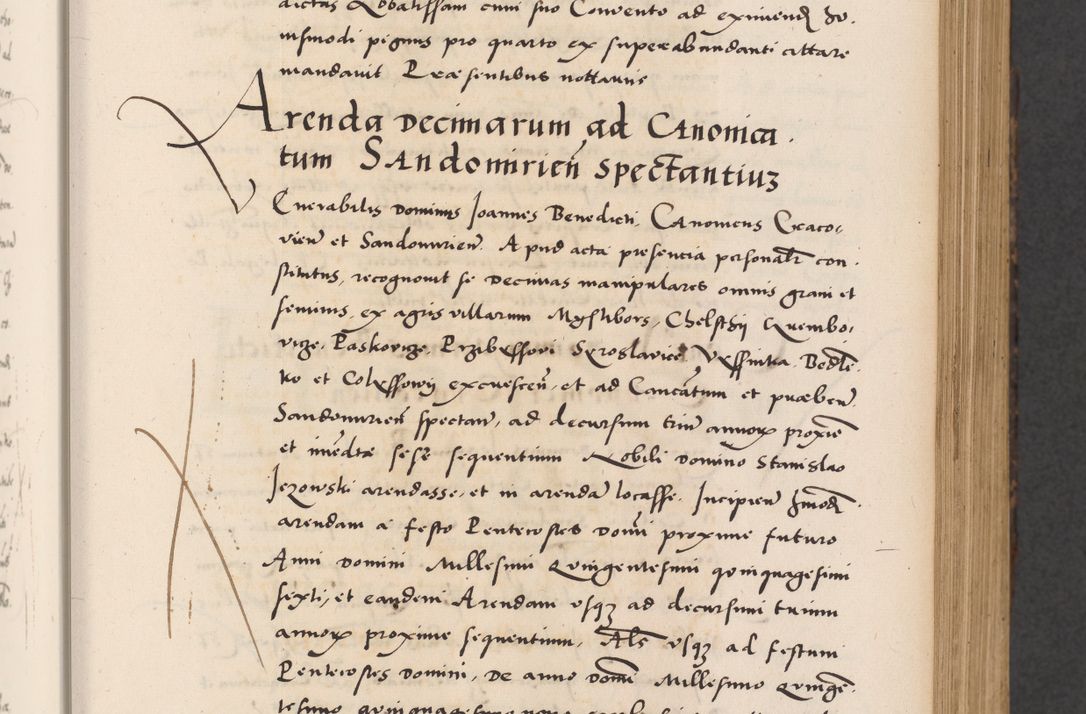 dictus Lobatissam cum suo Convento ad eximend ho-
iusmodi pignus pro quarto ex superabundanti cittare
mandavit Præsentibus nottariis
Arenda Decimarum ad Canonica-
tum Sandomirien̄ spectantiuꝫ
Venerabilis Dominus Joannes Benedicti, Canonicus Craco-
vien̄ et Sandomirien̄. Apud acta presencia personalr̄ con-
stitutus, recognovit se Decimas manipulares omnis grani et
seminis, ex agris villarum Mystibors, Chelsthy Quembo-
vicze, Paskovicze, Przibyssovi Syroslavice Vyssnitza, Bedle-
ko et Colyssowy excrescen̄, et ad Canc̄atum et præben̄
Sandomirien̄ spectan̄, ad decursum triū annoꝝ proxīe
et imēdte sese sequentium Nobili Domino Stanislao
Jezowski arendasse, et in arendā locasse. Incipien̄ hmōd
arendam a festo Penterostes Domīi proxime futuro
Anni Domini Millesimi Quingentesimi quinquagesimi
sexti, et eandem Arendam usqꝫ ad decursum trium
annoꝝ proxime sequentium, Als̄ usqꝫ ad festum
Penterostes Domini, De anno Domī Millesimo Quingē-
tesimo quinquagesimo nono